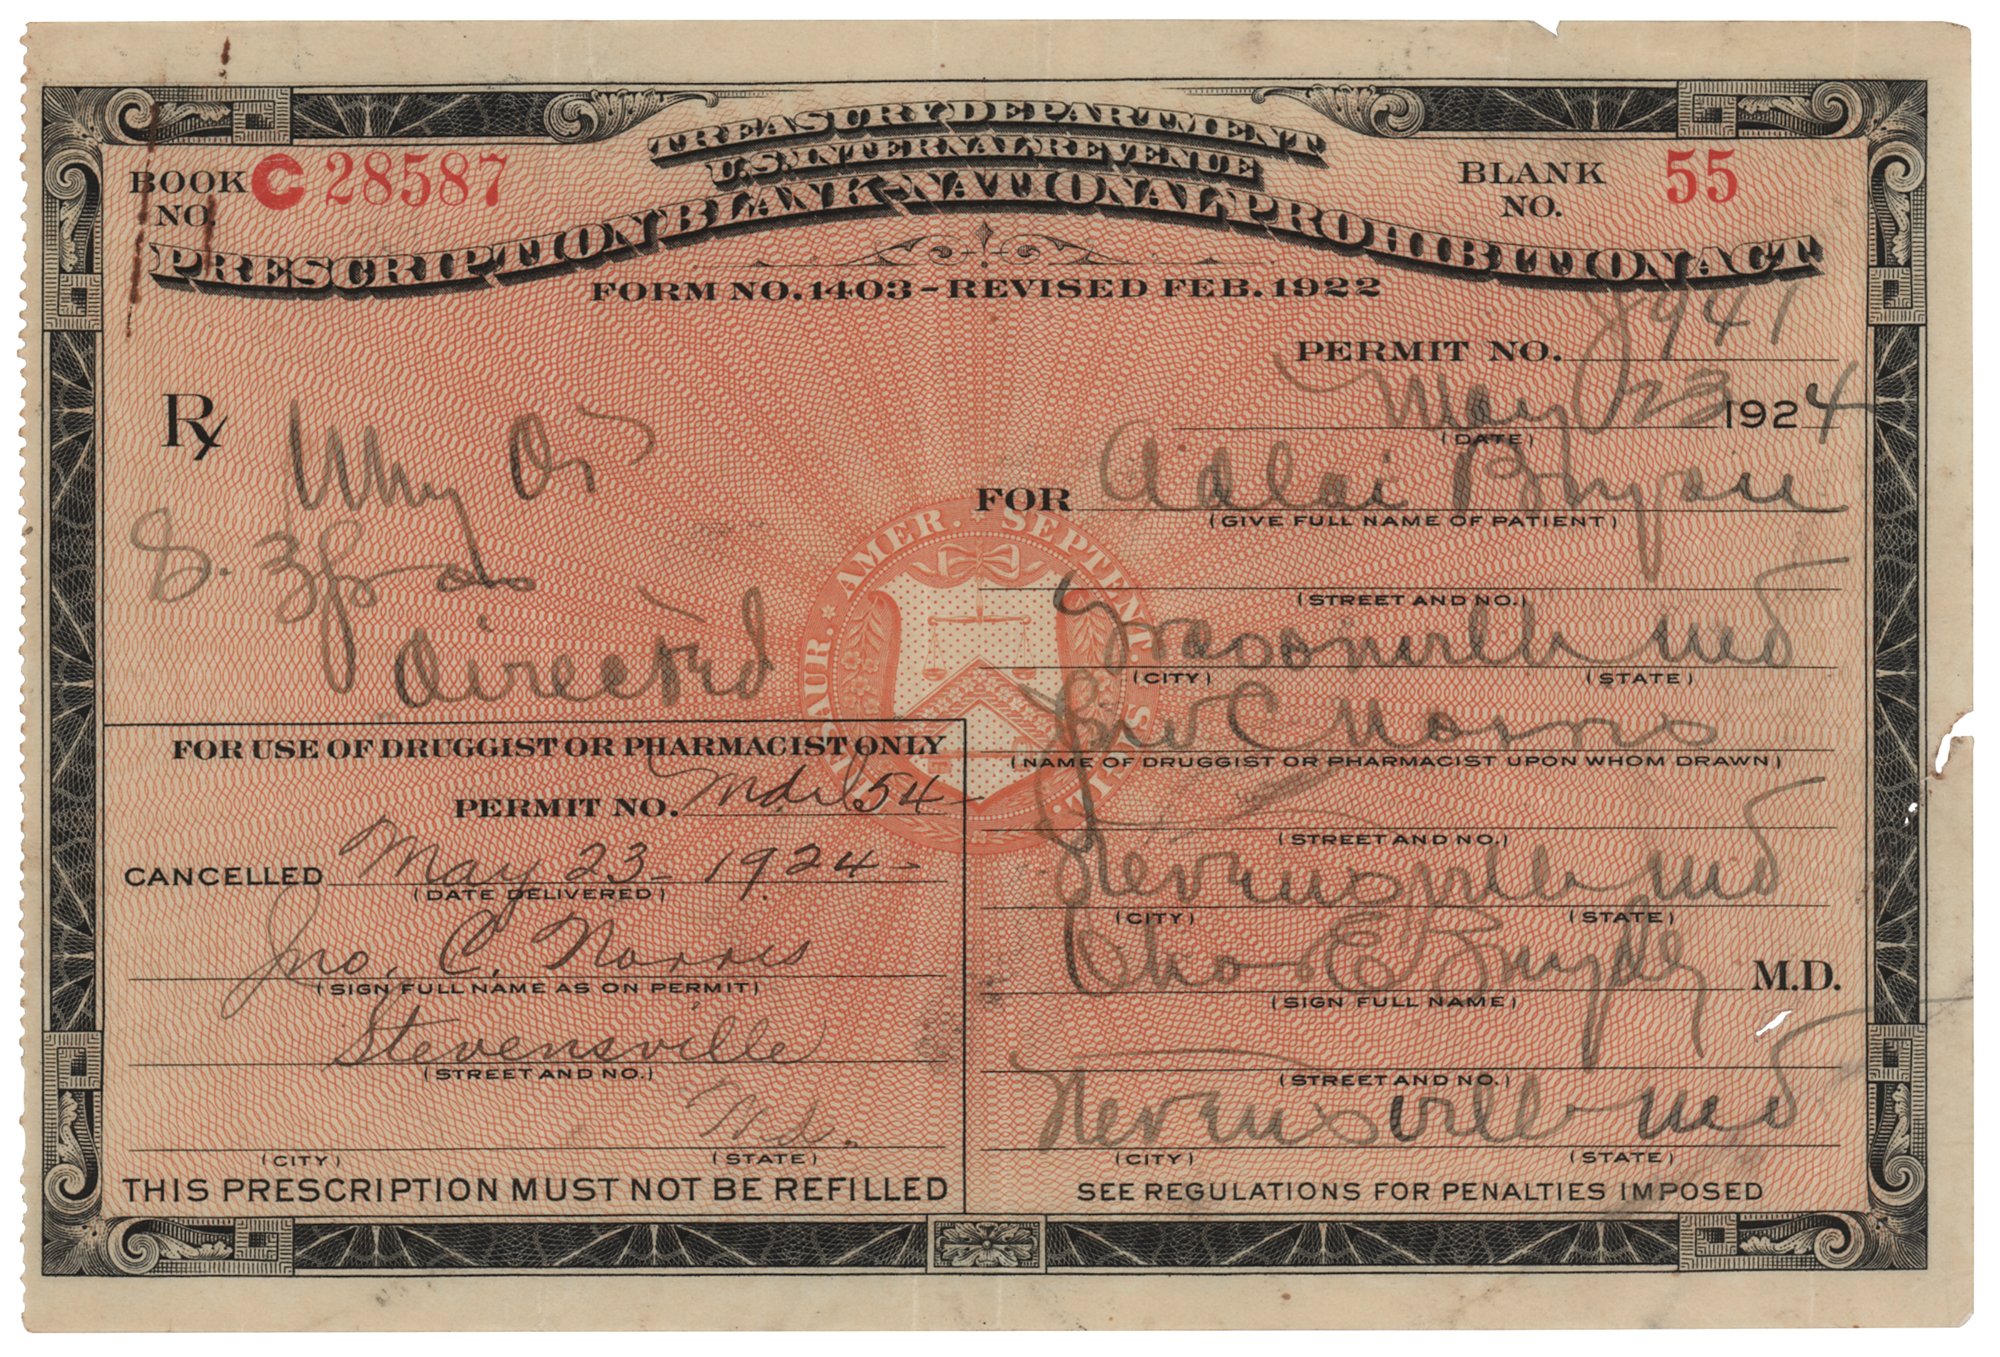 TREASURY DEPARTMENT
U.S. INTERNAL REVENUE
PRESCRIPTION BLANK-NATIONAL PROHIBITION ACT
FORM NO. 1403 - REVISED FEB. 1922
BOOK NO. C 28587
BLANK NO. 55
PERMIT NO. 8941
May 23 1924
(DATE)
Rx
S. as
directed
FOR Adlai Bryan
(GIVE FULL NAME OF PATIENT)
(STREET AND NO.)
Grasonville Md
(CITY) (STATE)
Jno C Norris
(NAME OF DRUGGIST OR PHARMACIST UPON WHOM DRAWN)
(STREET AND NO.)
Stevensville Md
(CITY) (STATE)
Chas E Snyder M.D.
(SIGN FULL NAME)
(STREET AND NO.)
Stevensville Md
(CITY) (STATE)
SEE REGULATIONS FOR PENALTIES IMPOSED
FOR USE OF DRUGGIST OR PHARMACIST ONLY
PERMIT NO. 54
CANCELLED May 23 - 1924 -
(DATE DELIVERED)
Jno. C. Norris
(SIGN FULL NAME AS ON PERMIT)
Stevensville
(STREET AND NO.)
Md.
(CITY) (STATE)
THIS PRESCRIPTION MUST NOT BE REFILLED
THESAUR. AMER. SEPTENT. SIGIL.